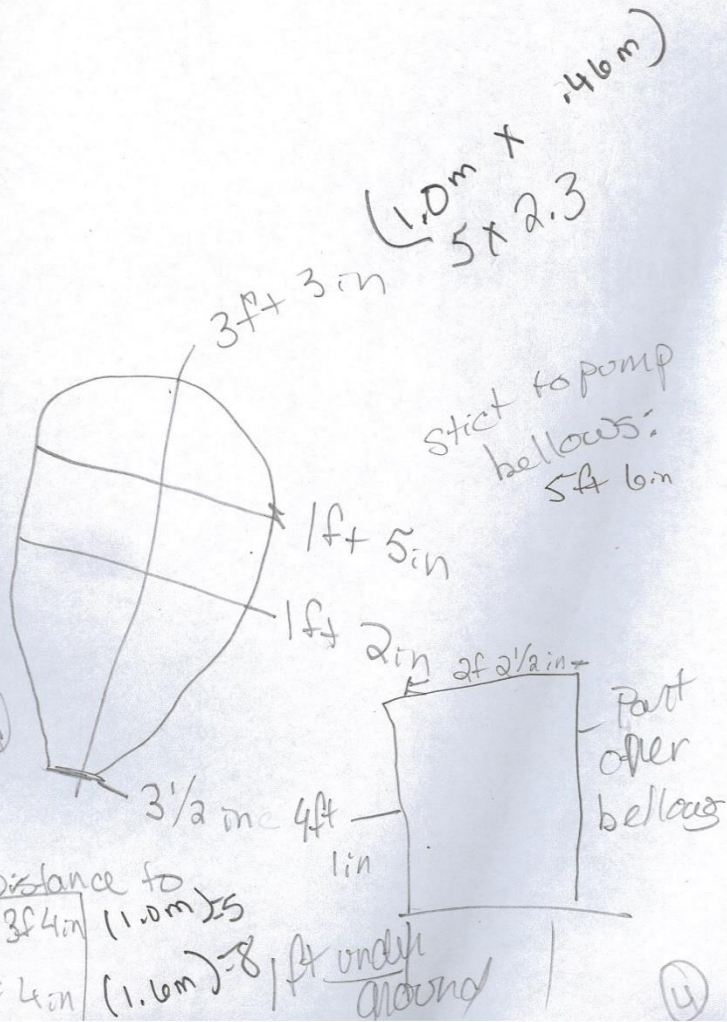 (1.0m x .46m)
5 x 2.3
3ft 3in
stict to pump
bellows:
5ft 6in
1ft 5in
1ft 2in
2f 2 1/2 in
Part
over
bellows
3 1/2 in
4ft
1in
Distance to
3f 4in (1.0m)=5
4in (1.6m)=8
1ft under
ground
4